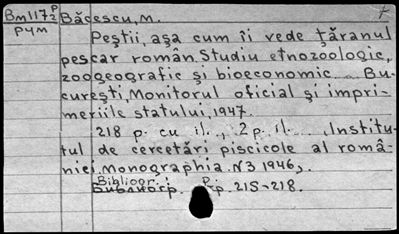 Bm1172 P Băcescu, M.
РУМ
Peștii, așa cum îi vede țăranul
pescar român. Studiu etnozoologic,
zoogeografic și bioeconomic... Bu-
curești, Monitorul oficial și impri-
meriile statului, 1947.
218 p. cu il., 2 p. il. ... Institu-
tul de cercetări piscicole al româ-
niei. Monographia. N3 1946,.
Bibliogr.: P
Библиогр. p. 215-218.